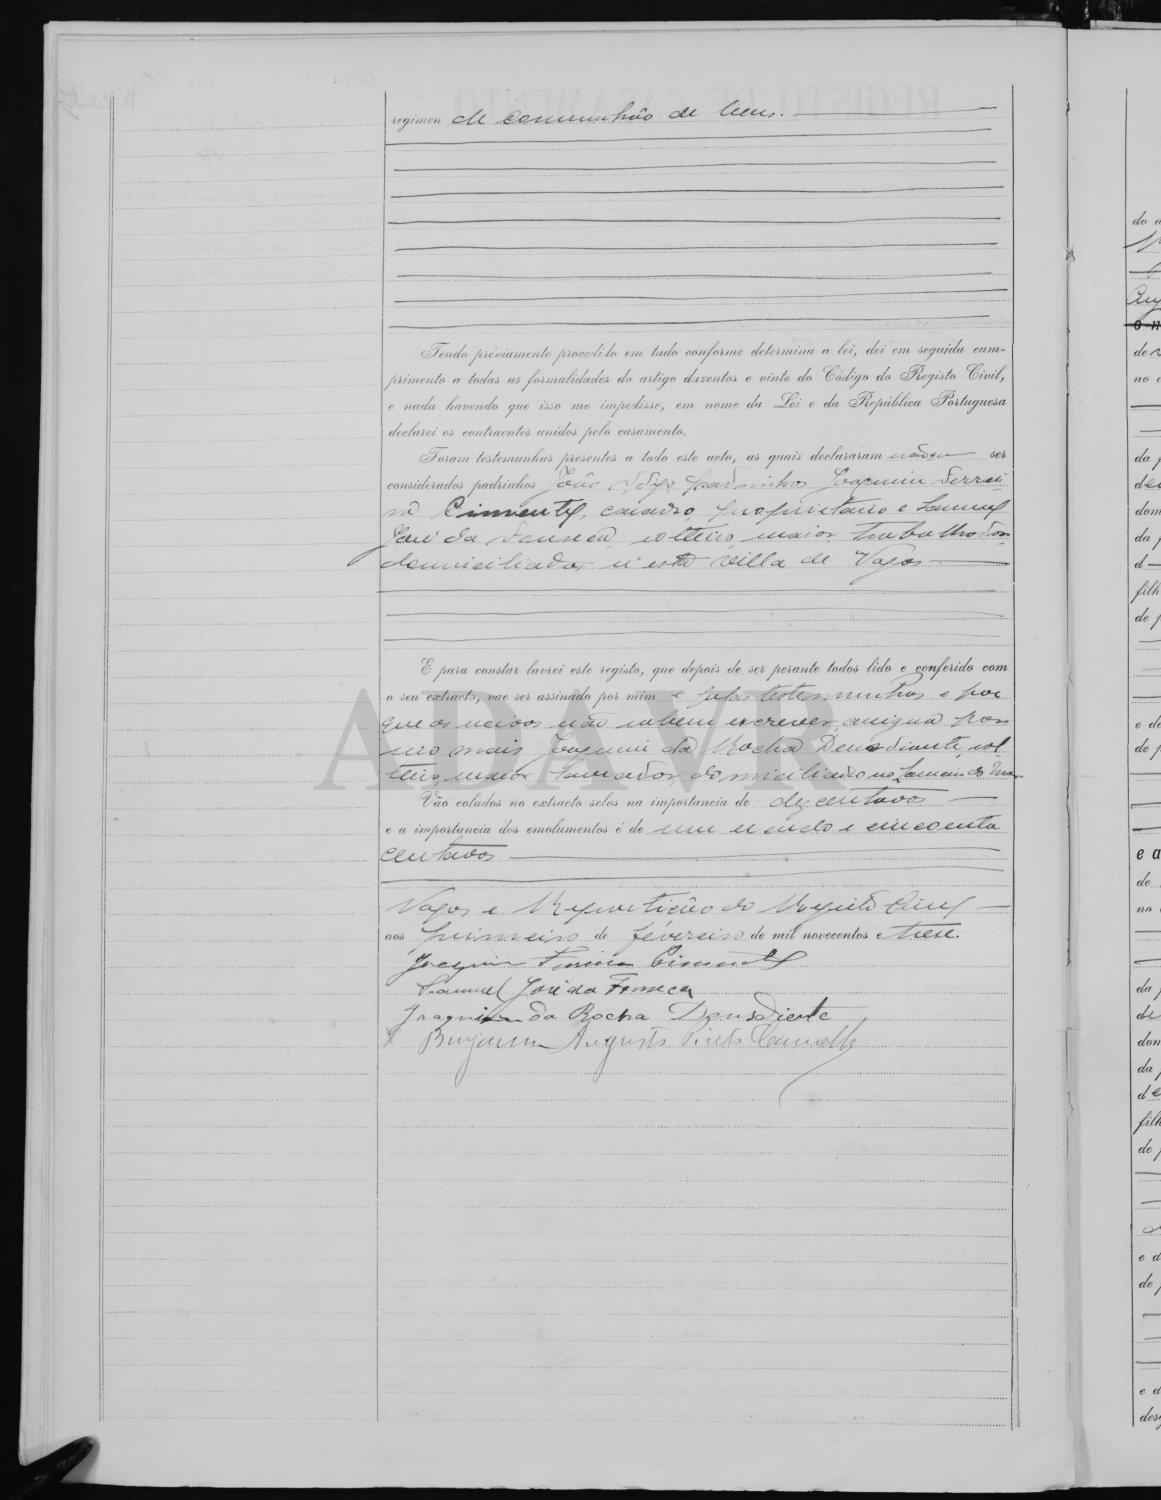 regimen de comunhão de bens.
Tendo préviamente procedido em tudo conforme determina a lei, dei em seguida cum-
primento a todas as formalidades do artigo duzentos e vinte do Código do Registo Civil,
e nada havendo que isso me impedisse, em nome da Lei e da República Portuguesa
declarei os contraentes unidos pelo casamento.
Foram testemunhas presentes a todo este acto, as quais declararam ser
considerados padrinhos João digo, padrinhos Joaquim Ferrei-
ra Pimentel, casado, proprietario e Samuel
José da Fonseca, solteiro, maior, trabalhador
domiciliados n'esta villa de Vagos
E para constar lavrei este registo, que depois de ser perante todos lido e conferido com
o seu extracto, vae ser assinado por mim e pelas testemunhas e por
que os noivos não sabem escrever, assigna por
mais Joaquim da Rocha Deusdiente, sol-
teiro, maior, lavrador, domiciliado no
Vão colados no extracto selos na importancia de dez centavos
e a importancia dos emolumentos é de um escudo e cincoenta
centavos
Vagos e Repartição do Registo Civil
aos primeiro de fevereiro de mil novecentos e treze.
Joaquim Ferreira Pimentel
Samuel José da Fonseca
Joaquim da Rocha Deusdiente
Augusto
ADAVR
do
de
no
da
dom
da
d
filh
de
e de
de
e a
de
no
da
de
dom
da
de
filh
de
e d
de
e a